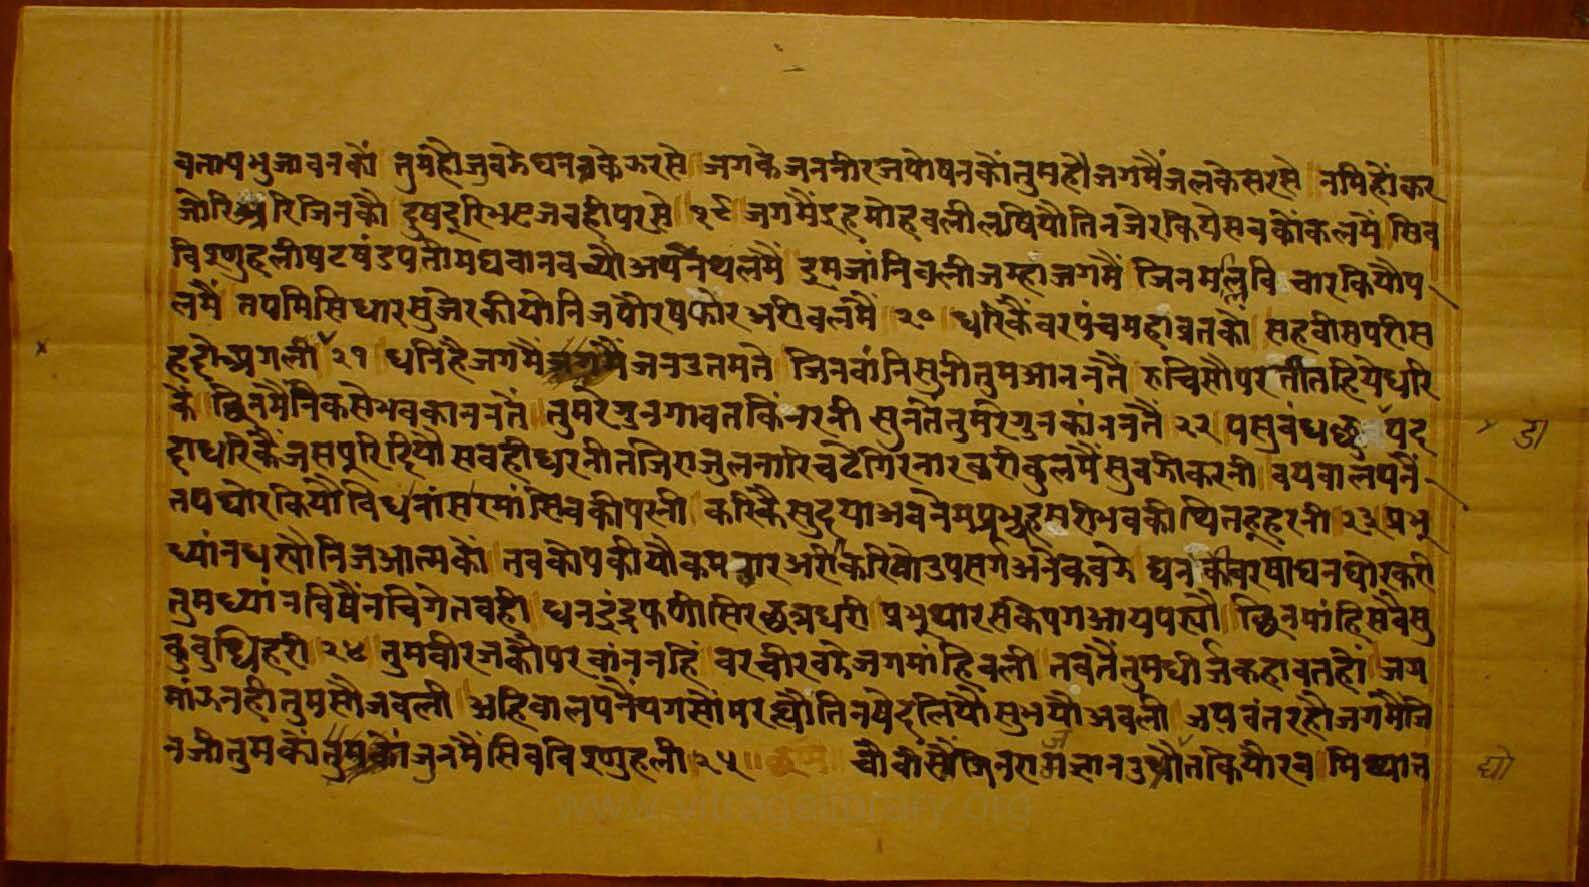 वताप भुजावनकौं तुमहौ जुवडे घनवके ऊरसे जगके जननीरज पोषनकौं तुमहौ जगमैं जलके सरसे नमिहौं कर
जोरि अरि जिनकौ दुषदूरि भए जवही परसे १९ जगमैं इह मोह वली लषियौ तिन जेर किये सवकौं कलमैं सिव
विश्णु हली षटषंडपती मघवा न वच्यौ अपनै थलमैं इम जांनि वुली जम्हा जगमैं जिनमल्लि विचार कियौ प
लमैं तप मिसि धार सु जेर कीयो निज पौरष फोर अरी वलमैं २० धरिकैं वर पंच महाव्रतकौं सहवीस परीस
ह हो प्रगली २१ धनि है जगमैं जन उतम ते जिनवांनि सुनी तुम आननतैं रुचिसौं परतीत हिये धरि
कैं छिनमैं निकसे भवकाननतैं तुमरे गुन गावत किंनरनी सुनतैं तुमरे गुन कांननतैं २२ पसुवंध छु पद
दा धरिकैं जस पूरि दियौ सवही धरनी तजि राजुल नारि चढे गिरनार वरी कुलमैं सुवभी करनी वय वालपनैं
तप घोर कियौ विधनां सरमां सिवकी परनी करिकै सुदया अव नेम प्रभू हमरी भवकी थिति हू हरनी २३ प्रभु
ध्यांन धस्यौ निज आत्मकौं तव कोप कीयौ कमठार अरी करियो उपसर्ग अनेक वडे घनकी वरषा घनघोर करी
तुम ध्यांन विषैं न चिगे तवही धनइंद्र फणी सिर छत्र धरी प्रभु थार सके पग आय पस्यौ छिन मांहि सवै सु
कुवुधि हरी २४ तुम वीर जकौ परवांन नहि वरवीर वडे जगमांहि वली तवतैं तुम धीर्ज कहावतहौ जग
मांऊ नही तुमसौ जवली अहि वालपनै पगसौं मरद्यौ तिनये दलियौ सुभयौ अवली जयवंत रहौ जगमैं जि
नजी तुमकौं तुमकौं जुनमैं सिव विश्णु हली २५ चौवीसौं जिनराज ज्ञान उद्योत कियौ रव मिथ्यात
डा
द्यो
www.vitragelibrary.org